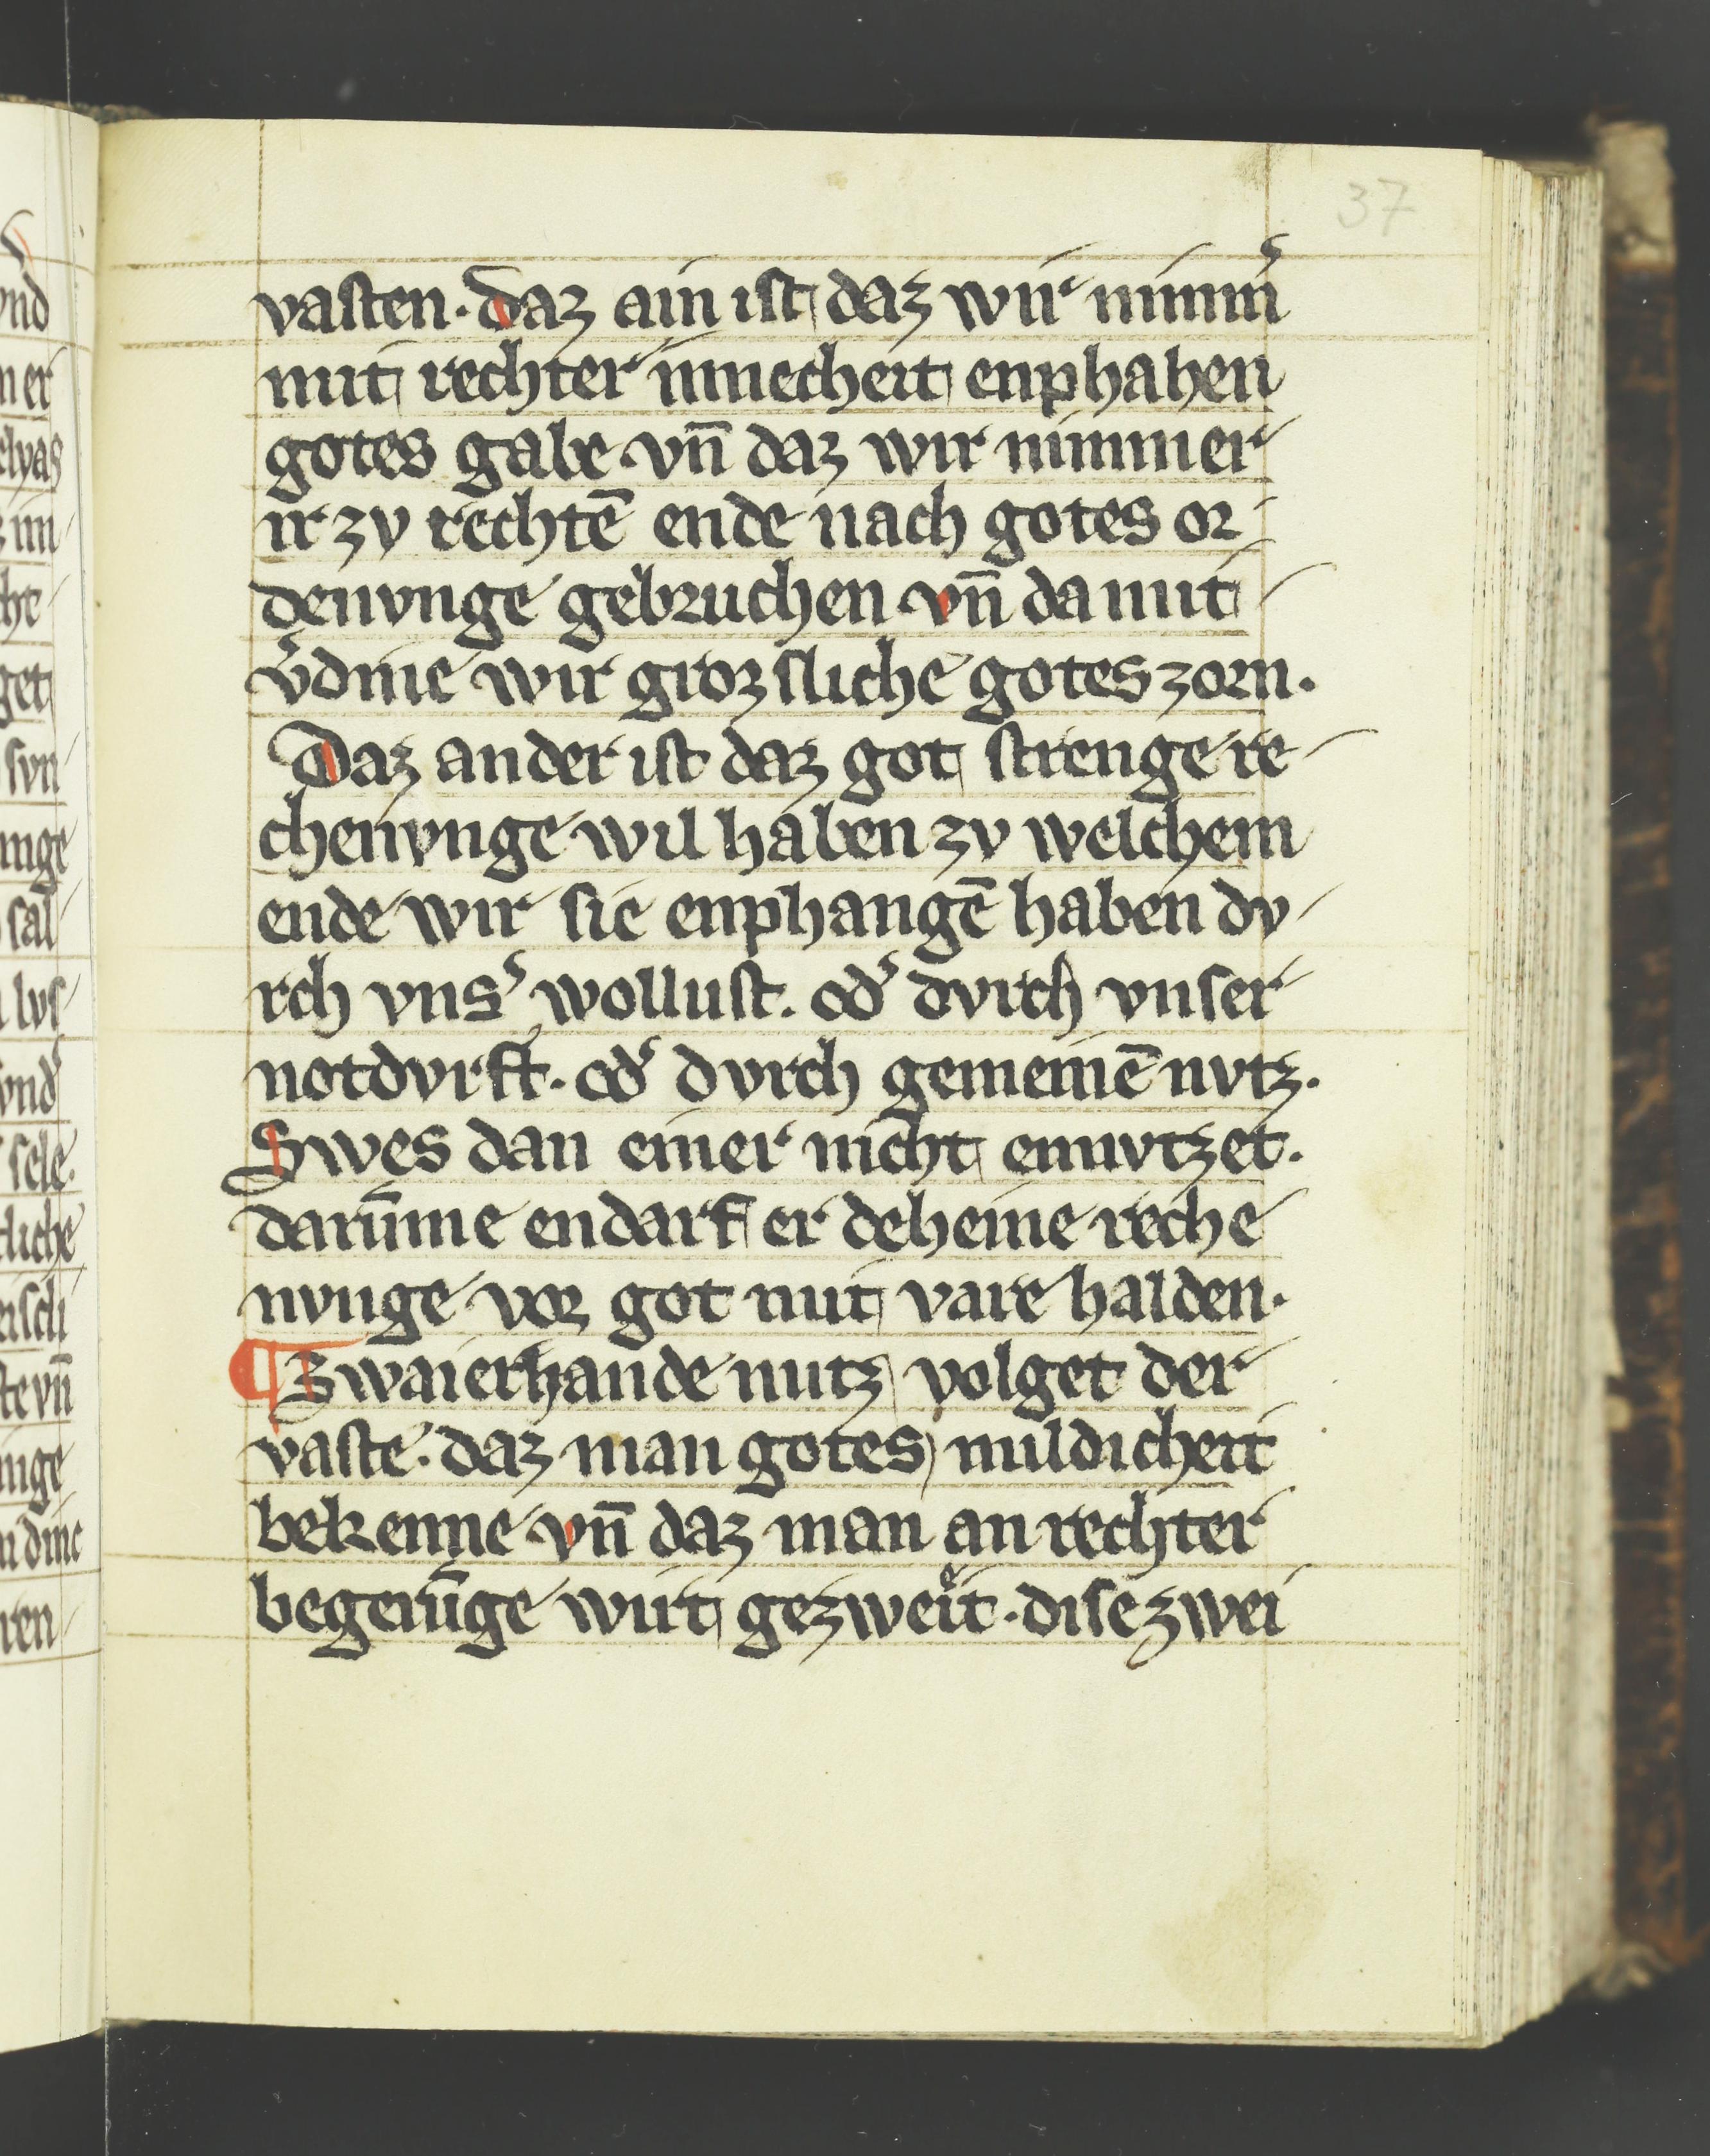 37
vasten. Daz ain ist daz wir nimm͛
mit rechter innecheit enphahen
gotes gabe vn̄ daz wir nimmer
ir zv rechtē ende nach gotes or
denvnge gebruchen vn̄ da mit
v͛dine wir grozsliche gotes zorn.
Daz ander ist daz got strenge re
chenvnge wil haben zv welchem
ende wir sie enphangē haben dv
rch vns͛ wollust. od͛ dvrch vnser
notdvrft. od͛ dvrch gemeinē nvtz.
Swes dan einer nicht ennvtzet.
darūme endarf er deheine reche
nvnge vor got mit vare halden.
¶ Zwaierhande nutz volget der
vaste. daz man gotes mildicheit
bekenne vn̄ daz man an rechter
begerūge wirt gezweiͤt. dise zwei